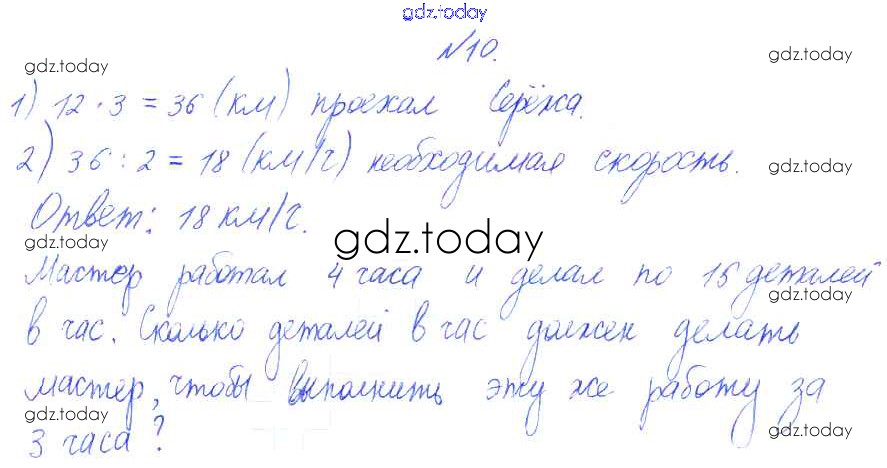 gdz.today
№10.
gdz.today
gdz.today
1) 12 · 3 = 36 (км) проехал Серёжа.
2) 36 : 2 = 18 (км/ч) необходимая скорость.
gdz.today
gdz.today
Ответ: 18 км/ч.
gdz.today
gdz.today
Мастер работал 4 часа и делал по 15 деталей
gdz.today
в час. Сколько деталей в час должен делать
gdz.today
мастер, чтобы выполнить эту же работу за
gdz.today
gdz.today
3 часа?